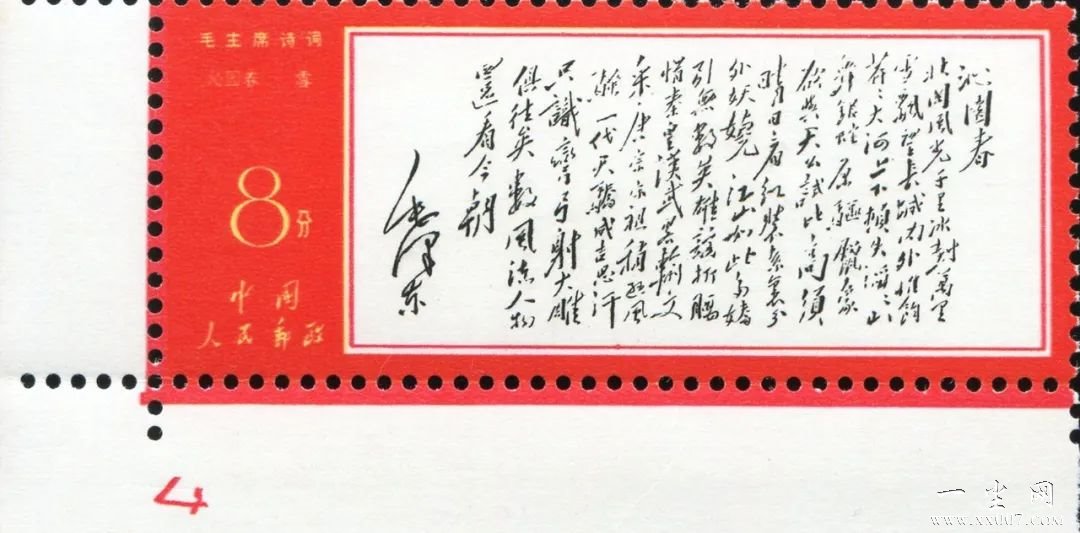 毛主席诗词
沁园春 雪
8分
中国
人民邮政
沁園春
北國風光千里冰封萬里
雪飄望長城內外惟餘
莽々大河上下頓失滔々山
舞銀蛇原驅臘象
欲與天公試比高須
晴日看紅裝素裹分
外妖嬈江山如此多嬌
引無數英雄競折腰
惜秦皇漢武略輸文
采唐宗宋祖稍遜風
騷一代天驕成吉思汗
只識彎弓射大雕
俱往矣數風流人物
還看今朝
毛澤東
4
一尘网
www.xx007.com